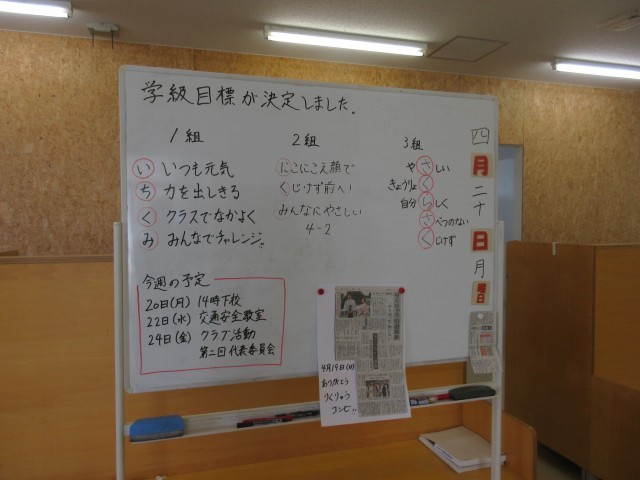 学級目標が決定しました。
1組
い いつも元気
ち 力を出しきる
く クラスでなかよく
み みんなでチャレンジ。
2組
にこにこえ顔で
くじけず前へ!
みんなにやさしい
4-2
3組
やさしい
きょうりょく
自分らしく
さべつのない
くじけず
四
月
二
十
日
月
曜日
今週の予定
20日(月) 14時下校
22日(水) 交通安全教室
24日(金) クラブ活動
第二回代表委員会
4月19日(日)
ありがとう
りくりゅう
コンビ!!